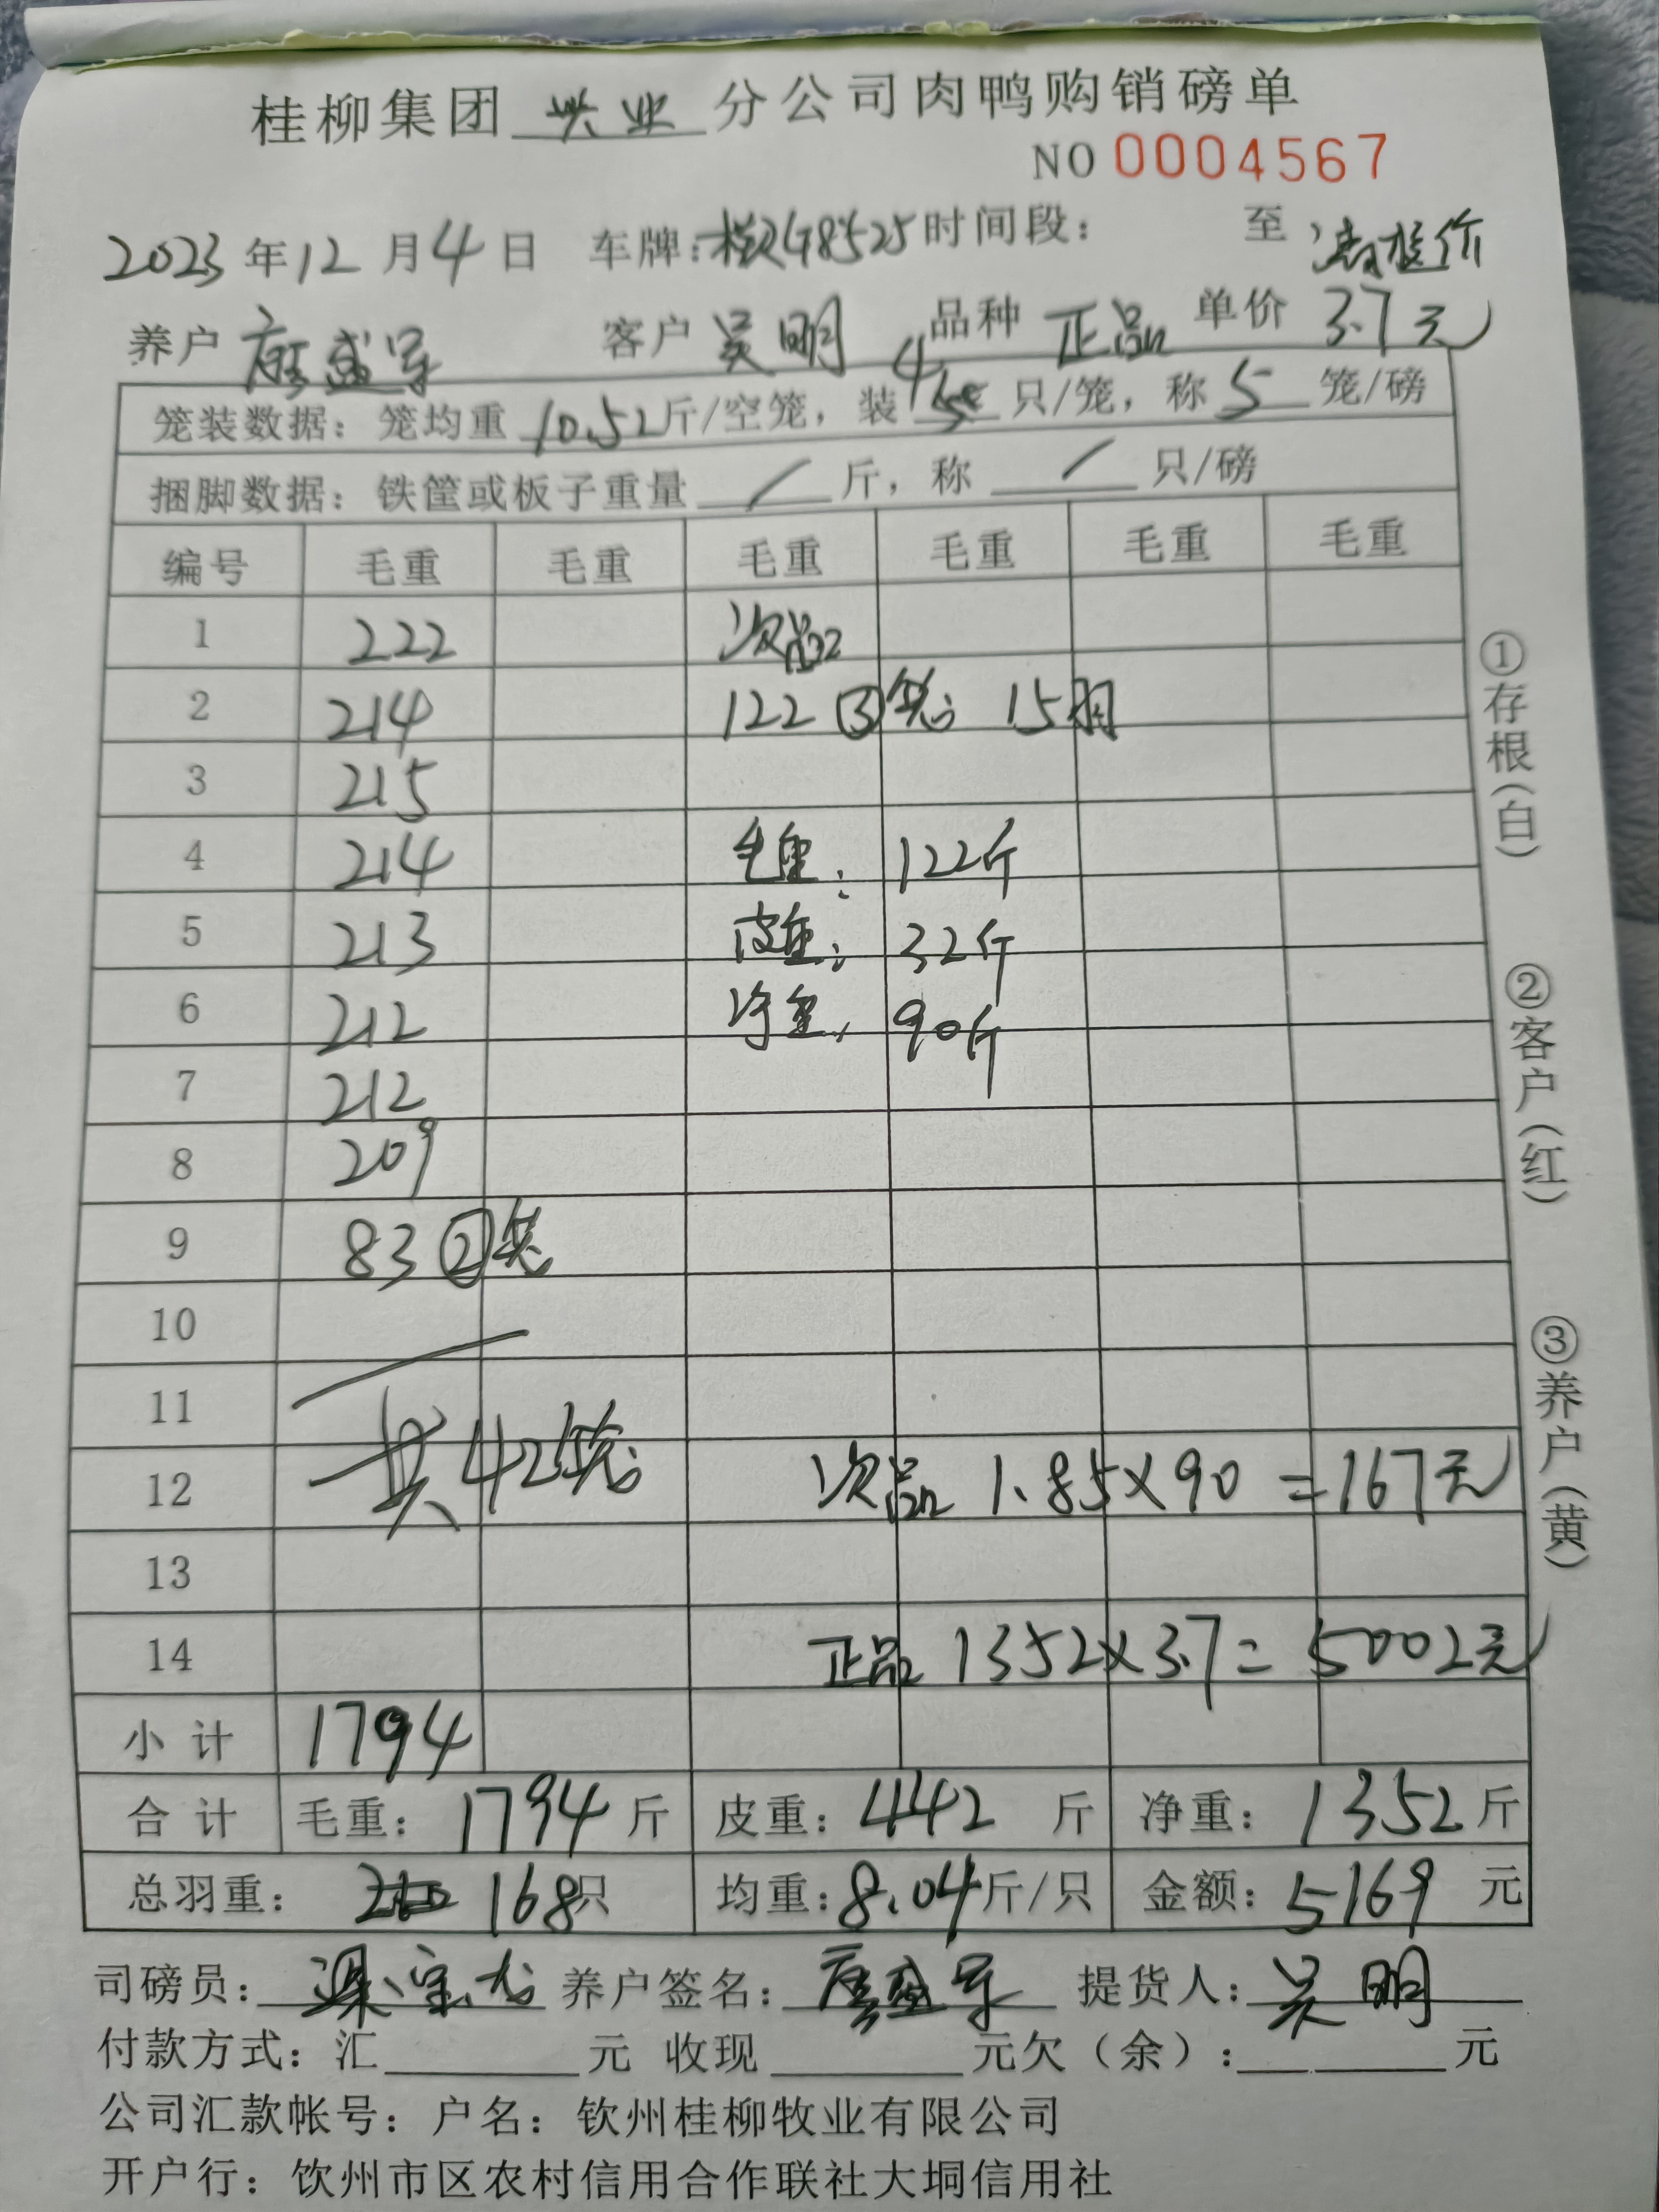 桂柳集团 兴业 分公司肉鸭购销磅单
NO 0004567
2023年12月4日 车牌: 时间段: 至
养户 唐盛军 客户 吴明 品种 正品 单价 3.7元
笼装数据: 笼均重 10.52斤/空笼, 装 4 只/笼, 称 5 笼/磅
捆脚数据: 铁筐或板子重量 / 斤, 称 / 只/磅
编号 毛重 毛重 毛重 毛重 毛重 毛重
1 222 次品
2 214 122 ③笼 15羽
3 215
4 214 毛重: 122斤
5 213 皮重: 32斤
6 212 净重: 90斤
7 212
8 209
9 83 ②笼
10
11 共42笼
12 次品 1.85×90=167元
13
14 正品 1352×3.7=5002元
小计 1794
合计 毛重: 1794斤 皮重: 442斤 净重: 1352斤
总羽重: 168只 均重: 8.04斤/只 金额: 5169元
司磅员: 梁宝龙 养户签名: 唐盛军 提货人: 吴明
付款方式: 汇 元 收现 元欠(余): 元
公司汇款帐号: 户名: 钦州桂柳牧业有限公司
开户行: 饮州市区农村信用合作联社大垌信用社
①存根(白) ②客户(红) ③养户(黄)